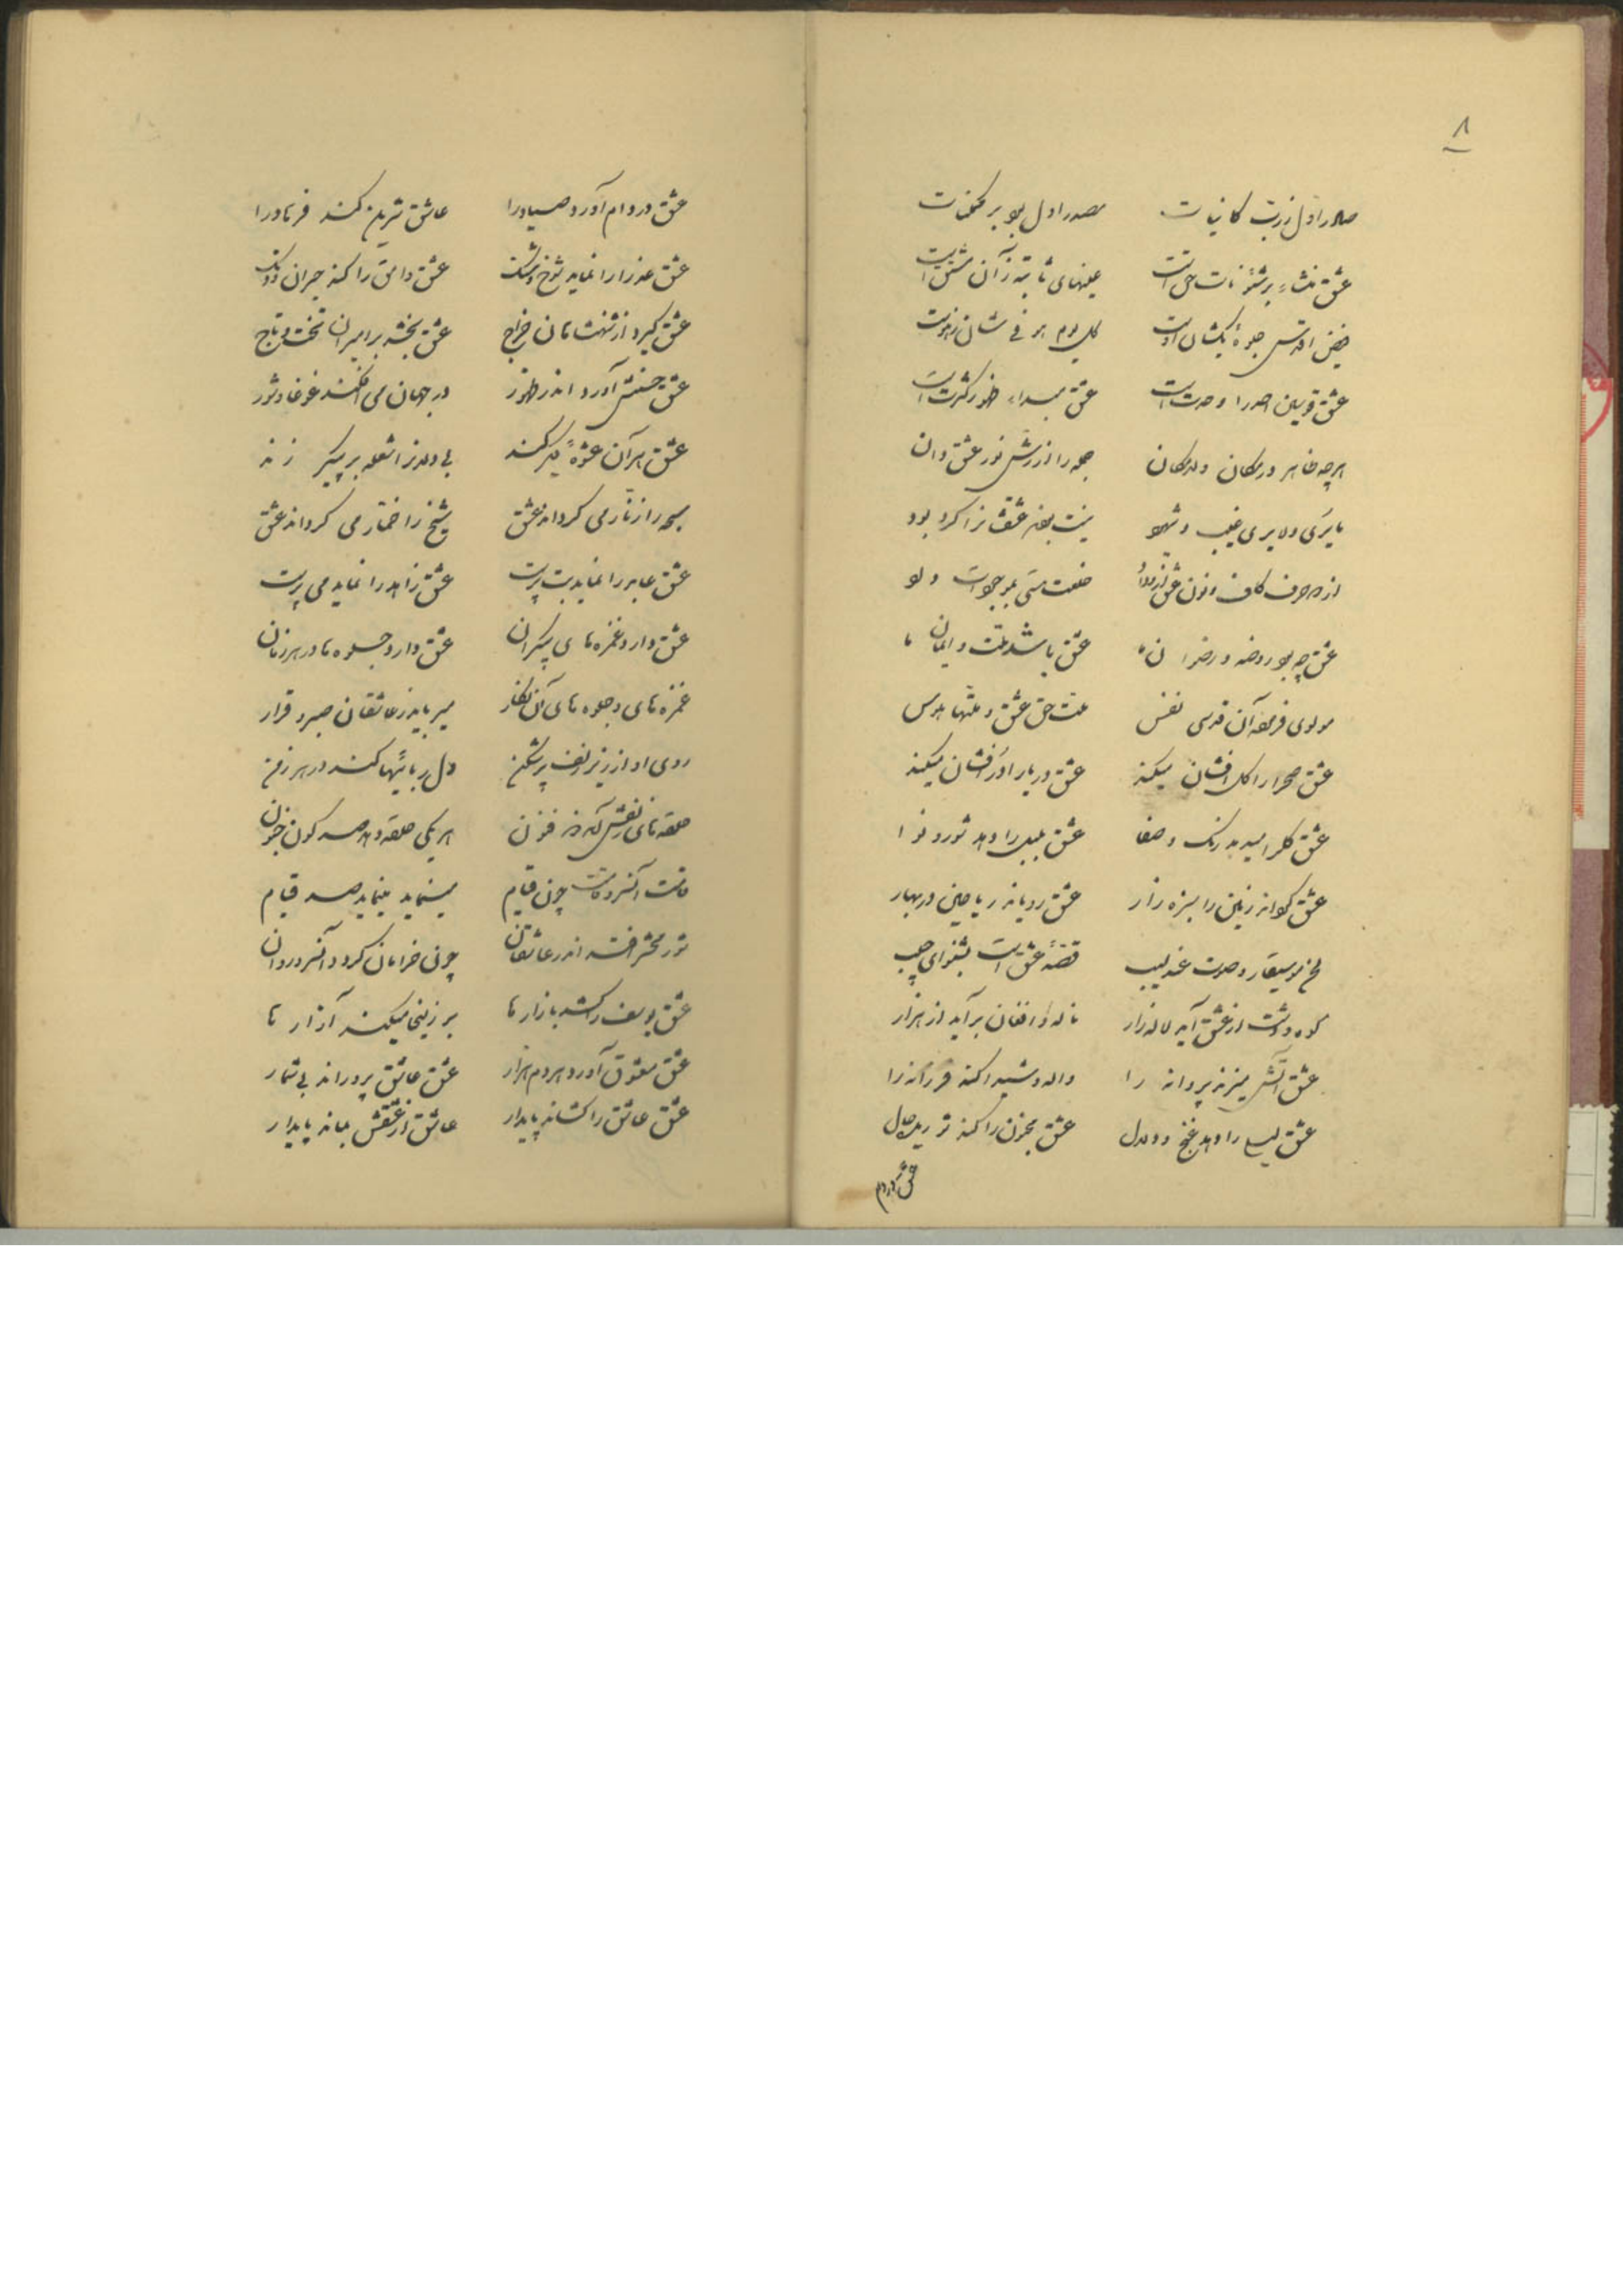 ۸
صادر اول ز رب کاینات مصدر اول بود بر ممکنات
عشق منشاء بر شئونات حق است عینهای ثابته زآن مشتق است
فیض اقدس جلوهٔ یکشان اوست کل یوم هو فی شان زهوست
عشق قوسین احد را وحدت است عشق مبداء ظهور کثرت است
هرچه ظاهر در مکان و لامکان جمله را از نور عشق دان
مایری و لایری غیب و شهود نیست بود عشقش
از دو حرف کاف و نون عشق خلعت هستی بهر موجود است
عشق چه بود روضه و رضوان ما عشق باشد ملت و ایمان ما
مولوی فرمود آن قدسی نفس ملت حق عشق و ملتها هوس
عشق صحرا را گل افشان میکند عشق دریا را در افشان میکند
عشق گل را میدهد رنگ و صفا عشق بلبل را دهد شور و نوا
عشق گرداند زمین را سبزه زار عشق رویاند ریاحین در بهار
لحن موسیقار و صوت عندلیب قصهٔ عشق است بشنو ای حبیب
کوه و دشت از عشق آید لاله زار ناله و افغان برآید از هزار
عشق آتش میزند پروانه را واله و شیدا کند فرزانه را
عشق لیلی را دهد غنج و دلال عشق مجنون را کند شوریده حال
عشق در دام
عشق در دام آورد صیاد را عاشق شیرین کند فرهاد را
عشق عذرا را نماید شوخ و شنگ عشق وامق را کند حیران و دنگ
عشق گیرد از شهنشاهان خراج عشق بخشد بر امیران تخت و تاج
عشق جنبش آورد اندر ظهور در جهان می‌افکند غوغا و شور
عشق هر آن عشوهٔ دیگر کند بی‌دلان را شعله بر پیکر زند
سبحه را زنار می گرداند عشق شیخ را خمار می گرداند عشق
عشق عابد را نماید بت پرست عشق زاهد را نماید می پرست
عشق دارد غمزه های بیکران عشق دارد جلوه ها در هر زمان
غمزه های و جلوه های آن نگار میرباید ز عاشقان صبر و قرار
روی او از زیر زلف پرشکن دل ربائیها کند در هر زمن
حلقه های زلفش آمد ذو فنون هر یکی حلقه دهد صد گون جنون
قامت آنسرو قامت چون قیام مینماید مینماید صد قیام
شور محشر افتد اندر عاشقان چون خرامان گردد آنسرو روان
عشق یوسف را کشد بازارها بر زلیخا میکند آزارها
عشق معشوق آورد هر دم هزار عشق عاشق پروراند بی شمار
عشق عاشق را کشاند پایدار عاشق از عشقش بماند پایدار